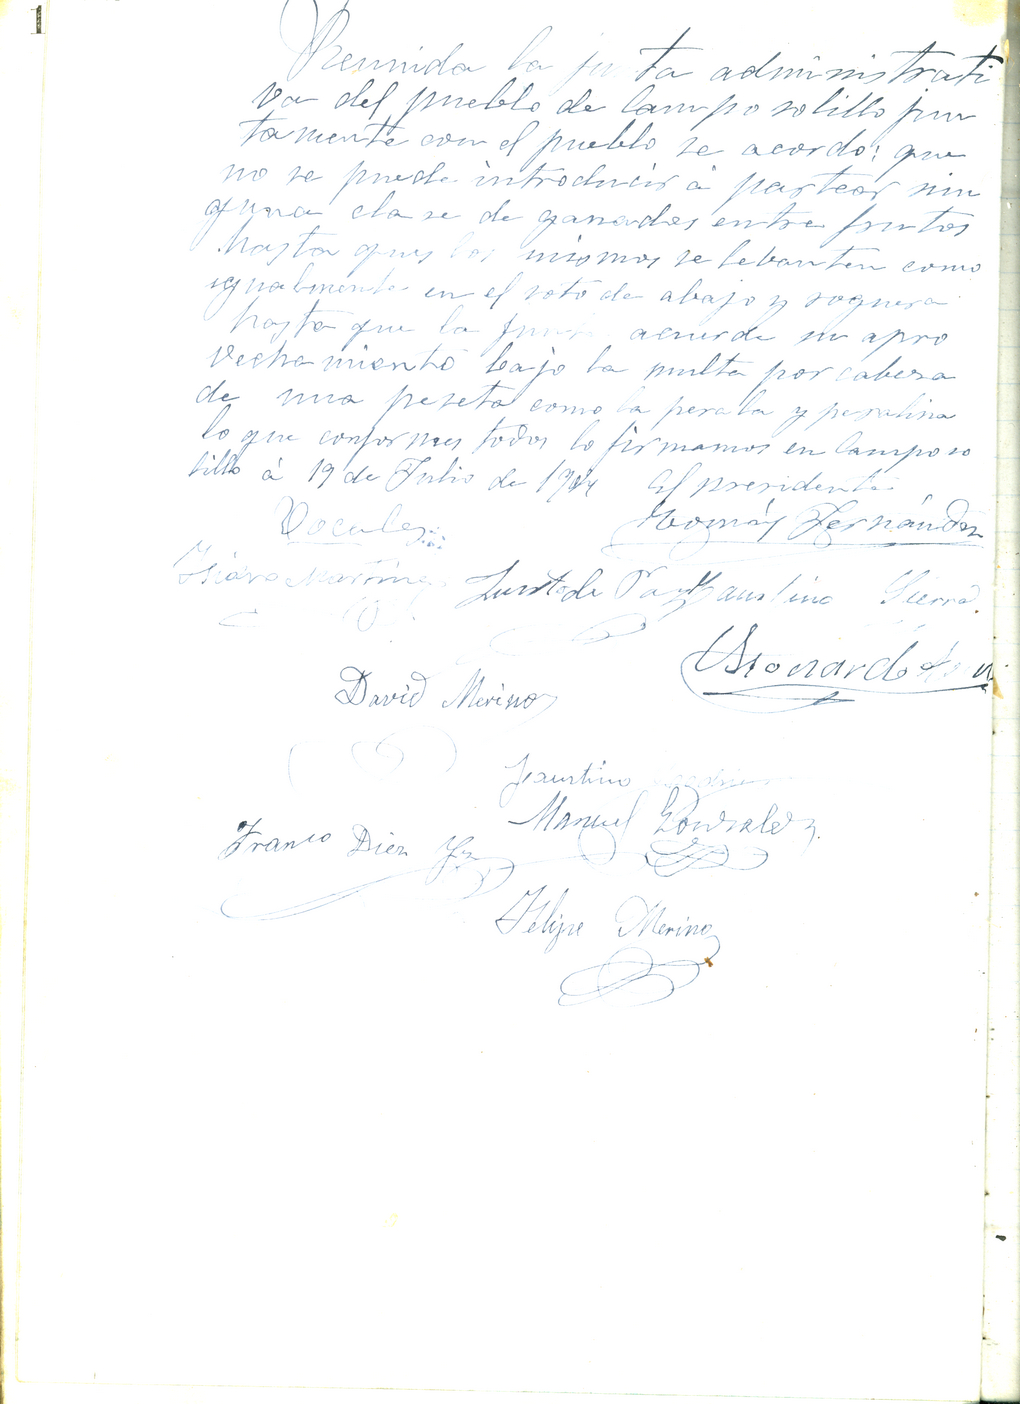 1
Reunida la junta administrati
va del pueblo de Camposolillo jun
tamente con el pueblo se acordo: que
no se puede introducir á pastear nin
guna clase de ganados entre frutos
hasta ques los mismos se lebanten como
igualmente en el soto de abajo y soguera
hasta que la junta acuerde su apro
vechamiento bajo la multa por cabesa
de una peseta como la perala y
lo que conformes todos lo firmamos en Camposo
lillo á 19 de Julio de El presidente
Vocales Tomás Fernández
Isidro Martínez Justo de Faustino Sierra
David Merino
Faustino
Manuel Gonzalez
Franco Diez Fz
Felipe Merino